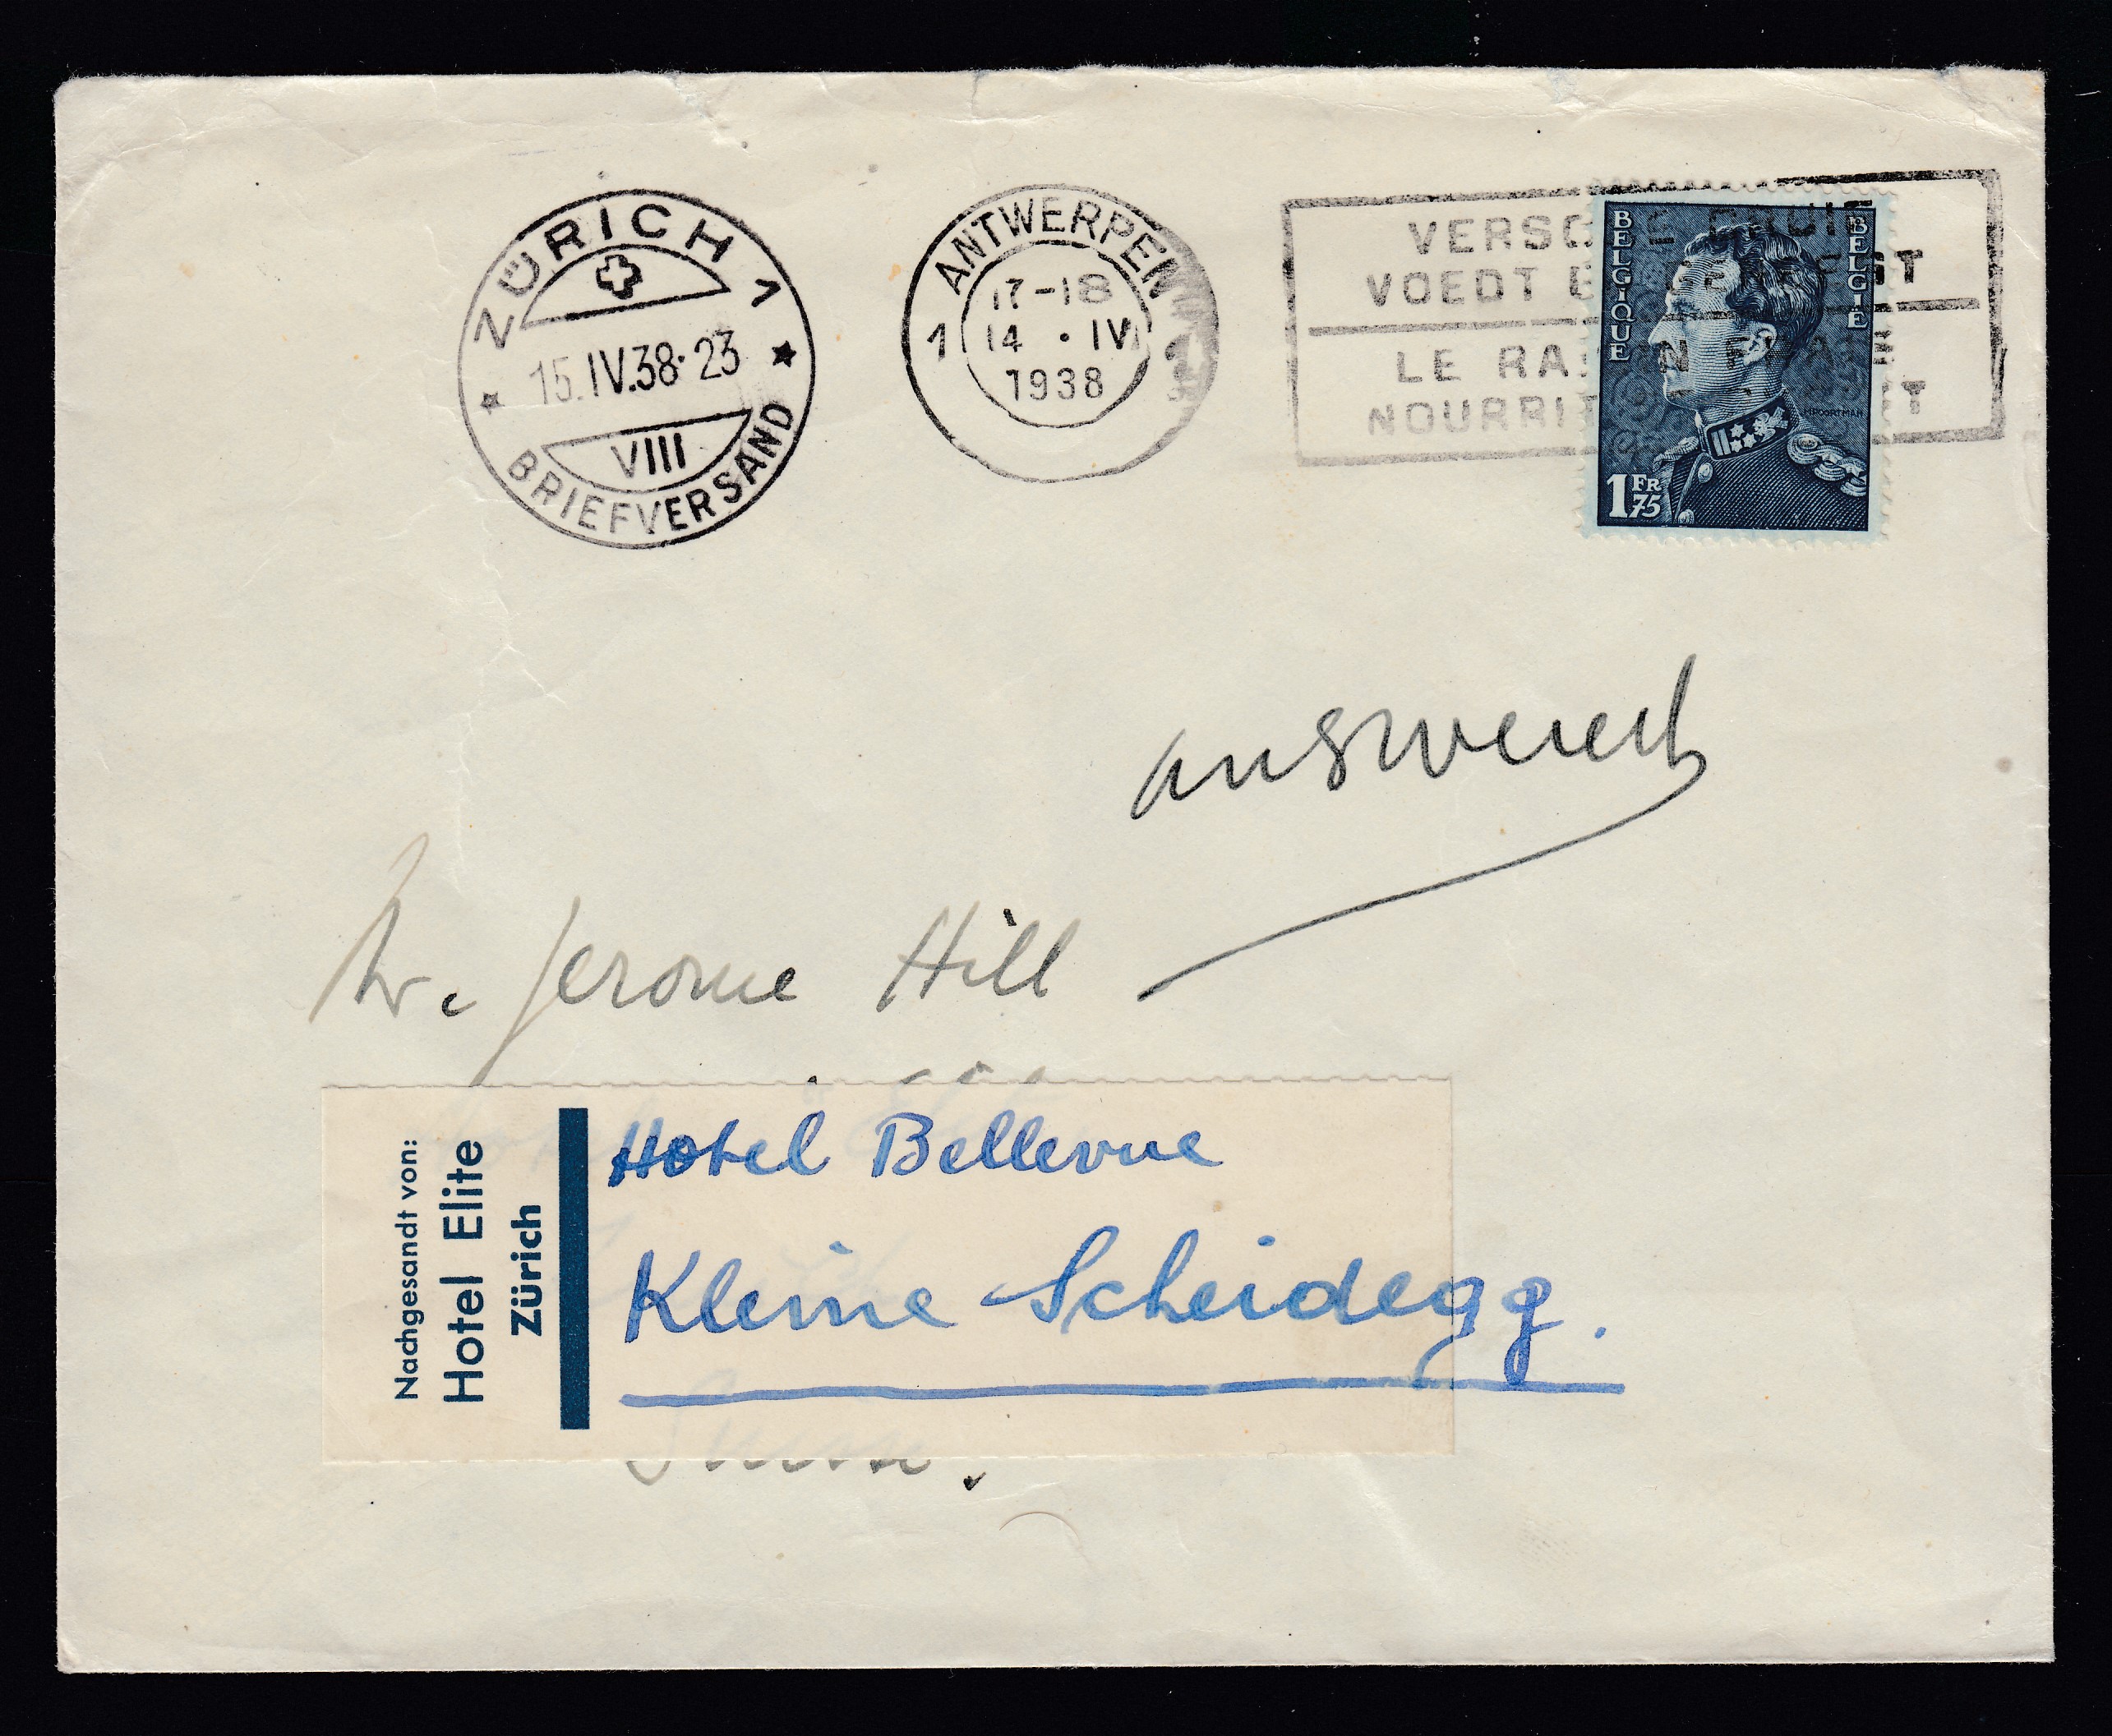 ZÜRICH 1
15.IV.38·23
VIII
BRIEFVERSAND
ANTWERPEN
1
17-18
14 · IV
1938
VOEDT
ST
LE
NOURRIT
BELGIQUE
BELGIE
1 FR 75
answered
Mr. Jerome Hill
Nachgesandt von:
Hotel Elite
Zürich
Hotel Bellevue
Kleine Scheidegg.
Suisse.